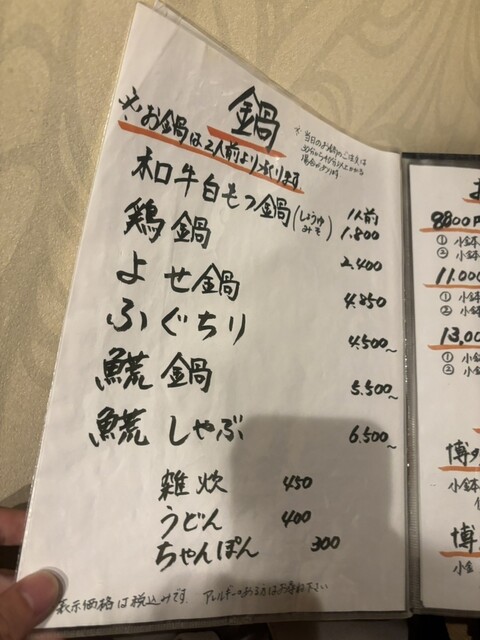 鍋
※お鍋は2人前よりつくります
※当日のお鍋のご注文は
30分から40分以上かかる
場合があります
和牛白もつ鍋(しょうゆ みそ) 1人前 1.800
鶏鍋 2.400
よせ鍋 4.850
ふぐちり 4.500~
鱶鍋 5.500~
鱶しゃぶ 6.500~
雑炊 450
うどん 400
ちゃんぽん 300
表示価格は税込みです. アレルギーのある方はお尋ね下さい
お
8800円
① 小鉢
② 小鉢
11.000
① 小鉢
② 小鉢
13.00
① 小鉢
② 小鉢
博多
小鉢
博
小